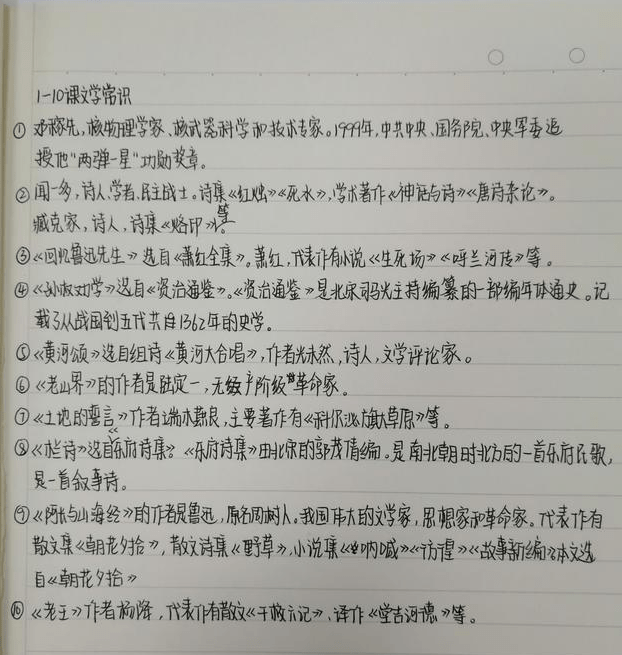 1-10课文学常识
① 邓稼先,核物理学家、核武器科学和技术专家。1999年,中共中央、国务院、中央军委追
授他"两弹一星"功勋奖章。
② 闻一多,诗人,学者,民主战士。诗集《红烛》《死水》,学术著作《神话与诗》《唐诗杂论》。
臧克家,诗人,诗集《烙印》等。
③《回忆鲁迅先生》选自《萧红全集》。萧红,代表作有小说《生死场》《呼兰河传》等。
④《孙权劝学》选自《资治通鉴》。《资治通鉴》是北宋司马光主持编纂的一部编年体通史。记
载了从战国到五代共自1362年的史学。
⑤《黄河颂》选自组诗《黄河大合唱》,作者光未然,诗人,文学评论家。
⑥《老山界》的作者是陆定一,无级产阶级革命家。
⑦《土地的誓言》作者端木蕻良,主要著作有《科尔沁旗草原》等。
⑧《木兰诗》选自《乐府诗集》《乐府诗集》由北宋的郭茂倩编。是南北朝时北方的一首乐府民歌,
是一首叙事诗。
⑨《阿长与山海经》的作者是鲁迅,原名周树人。我国伟大的文学家,思想家和革命家。代表作有
散文集《朝花夕拾》,散文诗集《野草》,小说集《呐喊》《彷徨》《故事新编》本文选
自《朝花夕拾》
⑩《老王》作者杨绛,代表作有散文《干校六记》、译作《堂吉诃德》等。